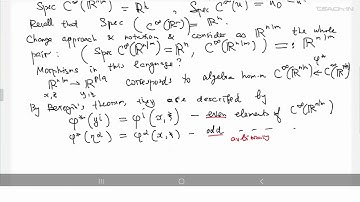 Spec C^∞(ℝ^n) = ℝ^n, Spec C^∞(
Recall that Spec (C^∞(ℝ^n)) = ℝ^n.
Change approach & notation & consider as ℝ^n|m the whole
pair: (Spec C^∞(ℝ^n|m) = ℝ^n, C^∞(ℝ^n|m)) =: ℝ^n|m
Morphisms in this language?
ℝ^n|m → ℝ^p|q corresponds to algebra homom C^∞(ℝ^n|m) ←φ* C^∞(ℝ^p|q)
x,ξ y,η
By Berezin's theorem, they are described by
φ*(y^i) = φ^i(x,ξ) - even elements of C^∞(ℝ^n|m)
φ*(η^α) = φ^α(x,ξ) - odd - - - .
arbitrary